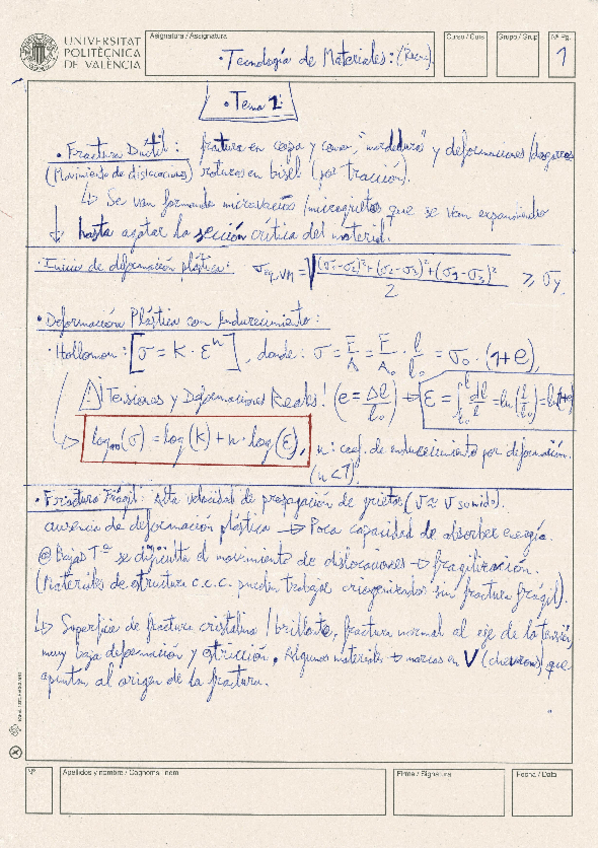 UNIVERSITAT
POLITÈCNICA
DE VALÈNCIA
Asignatura / Assignatura
· Tecnología de Materiales:
Curso / Curs
Grupo / Grup
Nº Pg.
1
· Tema 1:
· Fractura Dúctil: fractura en copa y cono, "mordedura" y deformaciones/desgarros
(Movimiento de dislocaciones) roturas en bisel (por tracción).
↳ Se van formando microvacíos/microgrietas que se van expandiendo
↓ hasta agotar la sección crítica del material.
· Inicio de deformación plástica: σeq,VM = √((σ1-σ2)²+(σ2-σ3)²+(σ1-σ3)²/2) ≥ σy
· Deformación Plástica con Endurecimiento:
· Hollomon: [σ = K · εⁿ], donde: σ = F/A = F/A₀ · l/l₀ = σ₀ · (1+e),
⚠ Tensiones y Deformaciones Reales! (e = Δl/l₀) → ε = ∫ dl/l = ln(l/l₀) = ln(1+e)
↳ log(σ) = log(K) + n · log(ε), n: coef. de endurecimiento por deformación.
(n < 1)
· Fractura Frágil: Alta velocidad de propagación de grietas (v ≈ v sonido).
ausencia de deformación plástica → Poca capacidad de absorber energía.
@ Bajas Tª se dificulta el movimiento de dislocaciones → fragilización.
(Materiales de estructura c.c.c. pueden trabajar criogenizados sin fractura frágil).
↳ Superficie de fractura cristalina / brillante, fractura normal al eje de la tensión,
muy baja deformación y estricción. Algunos materiales → marcas en V (chevrons) que
apuntan al origen de la fractura.
Nº
Apellidos y nombre / Cognoms i nom
Firma / Signatura
Fecha / Data